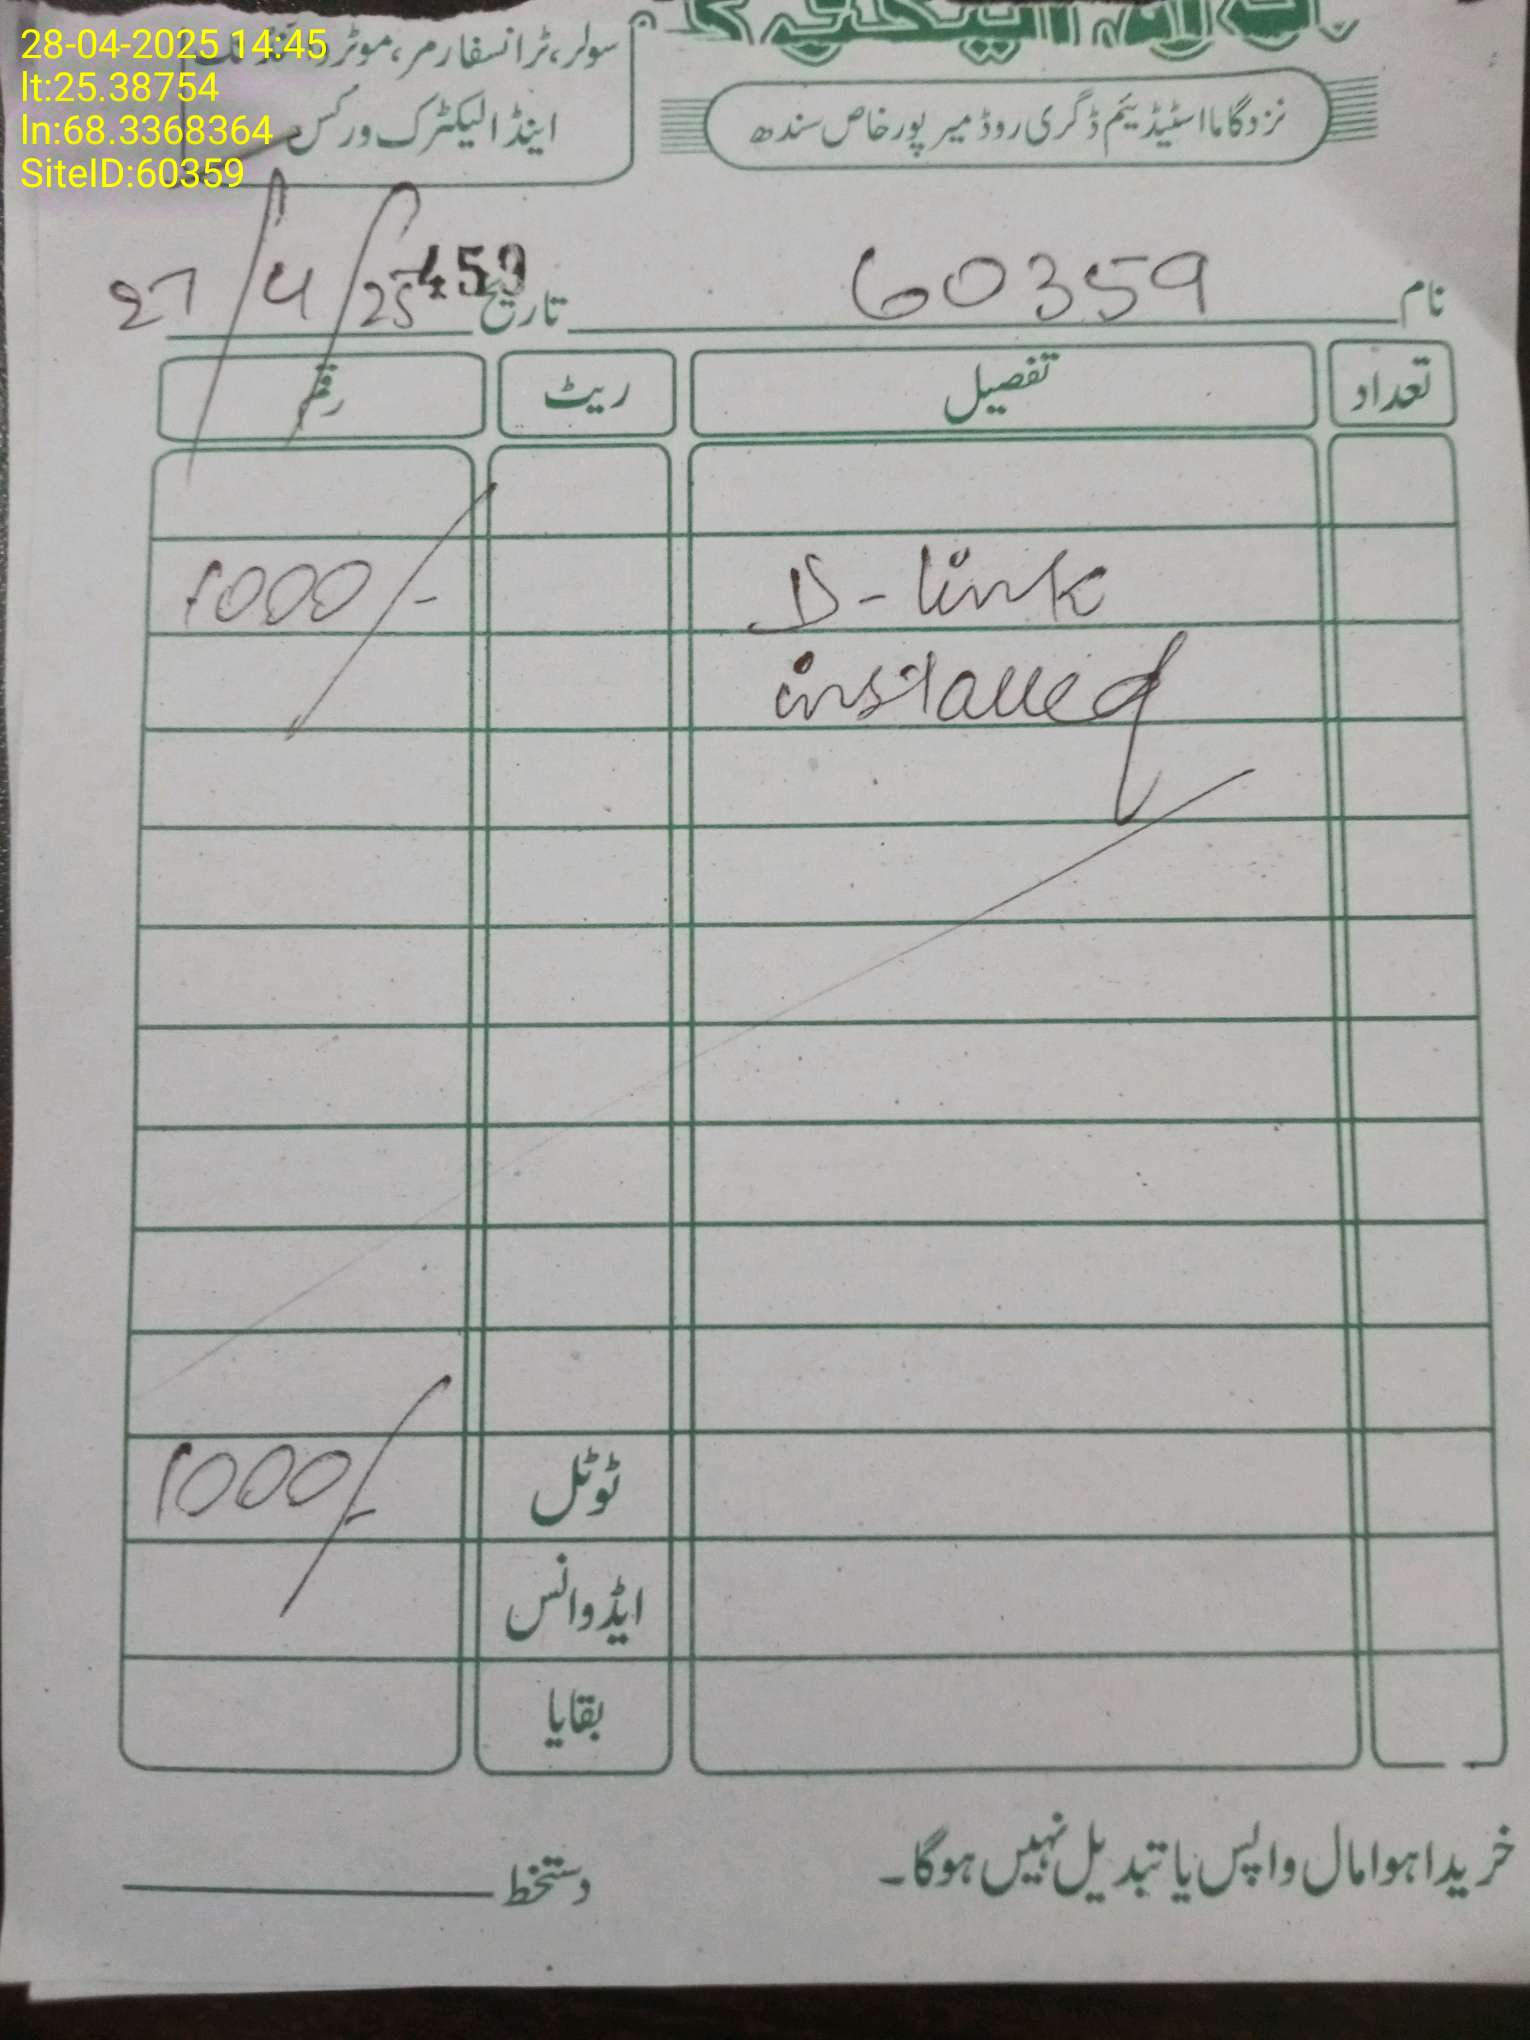 28-04-2025 14:45
lt:25.38754
ln:68.3368364
SiteID:60359
سولر، ٹرانسفارمر، موٹر
اینڈ الیکٹرک ورکس
نزد گاما اسٹیڈیئم ڈگری روڈ میرپورخاص سندھ
نام 60359 تاریخ 27/4/25
459
تعداد تفصیل ریٹ رقم
D-link 1000/-
installed
ٹوٹل 1000/-
ایڈوانس
بقایا
خریدا ہوا مال واپس یا تبدیل نہیں ہوگا۔
دستخط